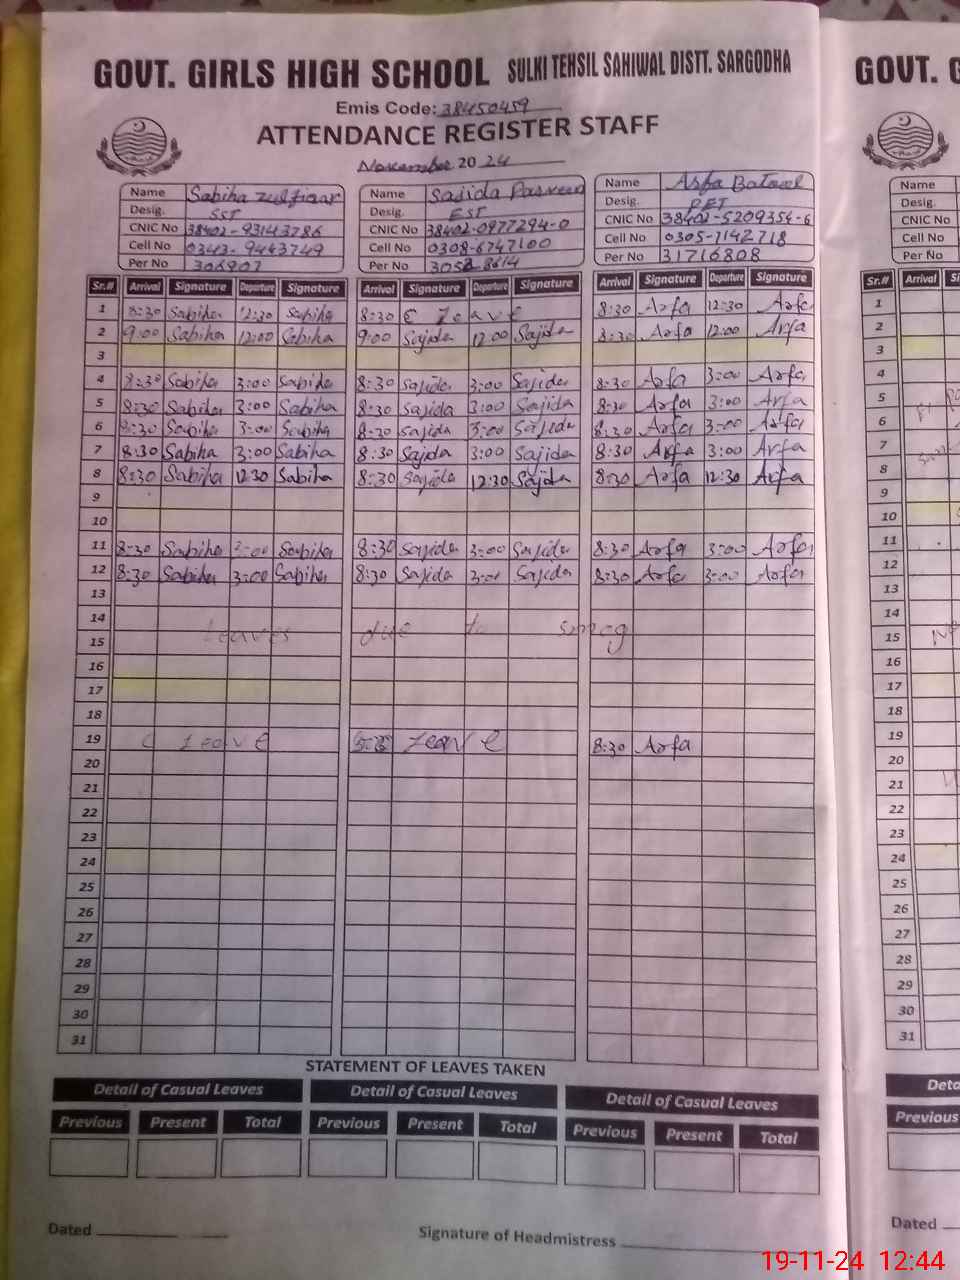 GOVT. GIRLS HIGH SCHOOL SULKI TEHSIL SAHIWAL DISTT. SARGODHA
GOVT. G
Emis Code: 38450459
ATTENDANCE REGISTER STAFF
November 2024
Name Sabiha Zulfiqar
Desig. SST
CNIC No 38402-93143786
Cell No 0343-9443749
Per No 306907
Name Sajida Parveen
Desig. EST
CNIC No 38402-0977294-0
Cell No 0308-6747100
Per No
Name Arfa Batool
Desig. PET
CNIC No 38402-5209354-6
Cell No 0305-7142718
Per No 31716808
Name
Desig.
CNIC No
Cell No
Per No
Sr.# Arrival Signature Departure Signature Arrival Signature Departure Signature Arrival Signature Departure Signature Arrival
1 8:30 Sabiha 12:30 Sabiha 8:30 C Leave 8:30 Arfa 12:30 Arfa 1
2 9:00 Sabiha 12:00 Sabiha 9:00 Sajida 12:00 Sajida 8:30 Arfa 12:00 Arfa 2
3 3
4 8:30 Sabiha 3:00 Sabiha 8:30 Sajida 3:00 Sajida 8:30 Arfa 3:00 Arfa 4
5 8:30 Sabiha 3:00 Sabiha 8:30 Sajida 3:00 Sajida 8:30 Arfa 3:00 Arfa 5
6 8:30 Sabiha 3:00 Sabiha 8:30 Sajida 3:00 Sajida 8:30 Arfa 3:00 Arfa 6
7 8:30 Sabiha 3:00 Sabiha 8:30 Sajida 3:00 Sajida 8:30 Arfa 3:00 Arfa 7
8 8:30 Sabiha 12:30 Sabiha 8:30 Sajida 12:30 Sajida 8:30 Arfa 12:30 Arfa 8
9 9
10 10
11 8:30 Sabiha 3:00 Sabiha 8:30 Sajida 3:00 Sajida 8:30 Arfa 3:00 Arfa 11
12 8:30 Sabiha 3:00 Sabiha 8:30 Sajida 3:00 Sajida 8:30 Arfa 3:00 Arfa 12
13 13
14 14
15 Leaves due to smog 15
16 16
17 17
18 18
19 C Leave Leave 8:30 Arfa 19
20 20
21 21
22 22
23 23
24 24
25 25
26 26
27 27
28 28
29 29
30 30
31 31
STATEMENT OF LEAVES TAKEN
Detail of Casual Leaves Detail of Casual Leaves Detail of Casual Leaves Deta
Previous Present Total Previous Present Total Previous Present Total Previous
Dated Signature of Headmistress Dated
19-11-24 12:44